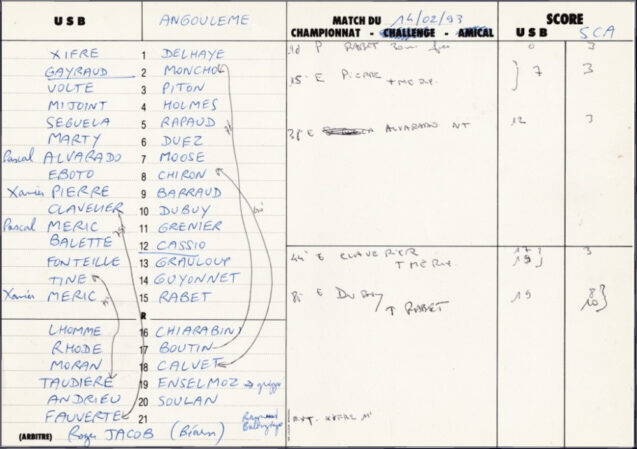 U S B ANGOULEME
XIFRE 1 DELHAYE
GAYRAUD 2 MONCHO
VOLTE 3 PITON
MIJOINT 4 HOLMES
SEGUELA 5 RAPAUD
MARTY 6 DUEZ
Pascal ALVARADO 7 MOOSE
EBOTO 8 CHIRON
Xavier PIERRE 9 BARRAUD
CLAVELIER 10 DUBUY
Pascal MERIC 11 GRENIER
BALETTE 12 CASSIO
FONTEILLE 13 GRAULOUP
TINE 14 GUYONNET
Xavier MERIC 15 RABET
R
LHOMME 16 CHIARABINI
RHODE 17 BOUTIN
MORAN 18 CALVET
TAUDIERE 19 ENSELMOZ → grippé
ANDRIEU 20 SOULAN
FAUVERTE 21
(ARBITRE) Roger JACOB (Béarn)
MATCH DU 14/02/93
CHAMPIONNAT - CHALLENGE - AMICAL
SCORE
U S B SCA
P RABET 0 3
15' E PIERRE 7 3
38' E ALVARADO NT 12 3
44' E CLAVERIER 17 3
19
E DuBuy 19 8
↑ RABET 10